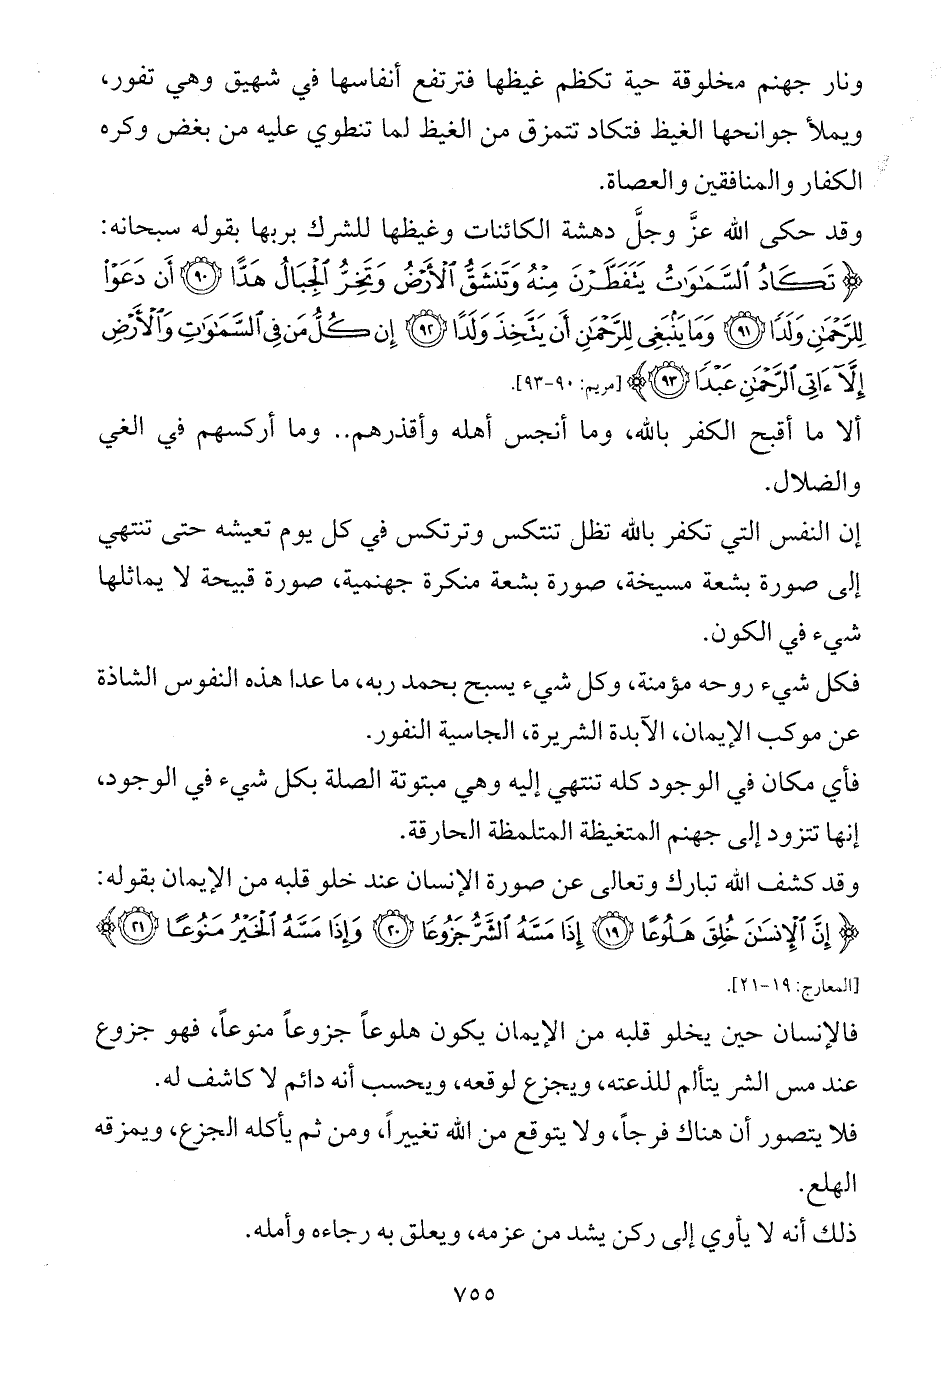 ونار جهنم مخلوقة حية تكظم غيظها فترتفع أنفاسها في شهيق وهي تفور،
ويملأ جوانحها الغيظ فتكاد تتمزق من الغيظ لما تنطوي عليه من بغض وكره
الكفار والمنافقين والعصاة.
وقد حكى الله عزَّ وجلَّ دهشة الكائنات وغيظها للشرك بربها بقوله سبحانه:
﴿ تَكَادُ ٱلسَّمَٰوَٰتُ يَتَفَطَّرْنَ مِنْهُ وَتَنشَقُّ ٱلْأَرْضُ وَتَخِرُّ ٱلْجِبَالُ هَدًّا ﴿٩٠﴾ أَن دَعَوْا۟
لِلرَّحْمَٰنِ وَلَدًا ﴿٩١﴾ وَمَا يَنۢبَغِى لِلرَّحْمَٰنِ أَن يَتَّخِذَ وَلَدًا ﴿٩٢﴾ إِن كُلُّ مَن فِى ٱلسَّمَٰوَٰتِ وَٱلْأَرْضِ
إِلَّآ ءَاتِى ٱلرَّحْمَٰنِ عَبْدًا ﴿٩٣﴾ ﴾ [مريم: ٩٠-٩٣].
ألا ما أقبح الكفر بالله، وما أنجس أهله وأقذرهم.. وما أركسهم في الغي
والضلال.
إن النفس التي تكفر بالله تظل تنتكس وترتكس في كل يوم تعيشه حتى تنتهي
إلى صورة بشعة مسيخة، صورة بشعة منكرة جهنمية، صورة قبيحة لا يماثلها
شيء في الكون.
فكل شيء روحه مؤمنة، وكل شيء يسبح بحمد ربه، ما عدا هذه النفوس الشاذة
عن موكب الإيمان، الآبدة الشريرة، الجاسية النفور.
فأي مكان في الوجود كله تنتهي إليه وهي مبتوتة الصلة بكل شيء في الوجود،
إنها تتزود إلى جهنم المتغيظة المتلمظة الحارقة.
وقد كشف الله تبارك وتعالى عن صورة الإنسان عند خلو قلبه من الإيمان بقوله:
﴿ إِنَّ ٱلْإِنسَٰنَ خُلِقَ هَلُوعًا ﴿١٩﴾ إِذَا مَسَّهُ ٱلشَّرُّ جَزُوعًا ﴿٢٠﴾ وَإِذَا مَسَّهُ ٱلْخَيْرُ مَنُوعًا ﴿٢١﴾ ﴾
[المعارج: ١٩-٢١].
فالإنسان حين يخلو قلبه من الإيمان يكون هلوعاً جزوعاً منوعاً، فهو جزوع
عند مس الشر يتألم للذعته، ويجزع لوقعه، ويحسب أنه دائم لا كاشف له.
فلا يتصور أن هناك فرجاً، ولا يتوقع من الله تغييراً، ومن ثم يأكله الجزع، ويمزقه
الهلع.
ذلك أنه لا يأوي إلى ركن يشد من عزمه، ويعلق به رجاءه وأمله.
٧٥٥